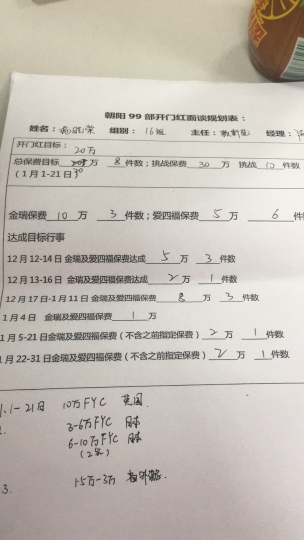 朝阳99部开门红面谈规划表：
姓名： 组别： 16组 主任： 经理：
开门红目标： 20万
总保费目标 万 8 件数；挑战保费 30 万 挑战 12 件数
（1月1-21日 30
金瑞保费 10 万 3 件数；爱四福保费 5 万 6 件数
达成目标行事
12月12-14日金瑞及爱四福保费达成 5 万 3 件数
12月13-16日 金瑞及爱四福保费达成 2 万 1 件数
12月17日-1月11日金瑞及爱四福保费 8 万 3 件数
1月4日 金瑞及爱四福保费 1 万
1月5-21日金瑞及爱四福保费（不含之前指定保费） 2 万 1 件数
1月22-31日金瑞及爱四福保费（不含之前指定保费） 2 万 1 件数
1.1-21日 10万FYC 英国
2. 3-6万FYC 日本
6-10万FYC 日本
（2名）
3. 1.5万-3万